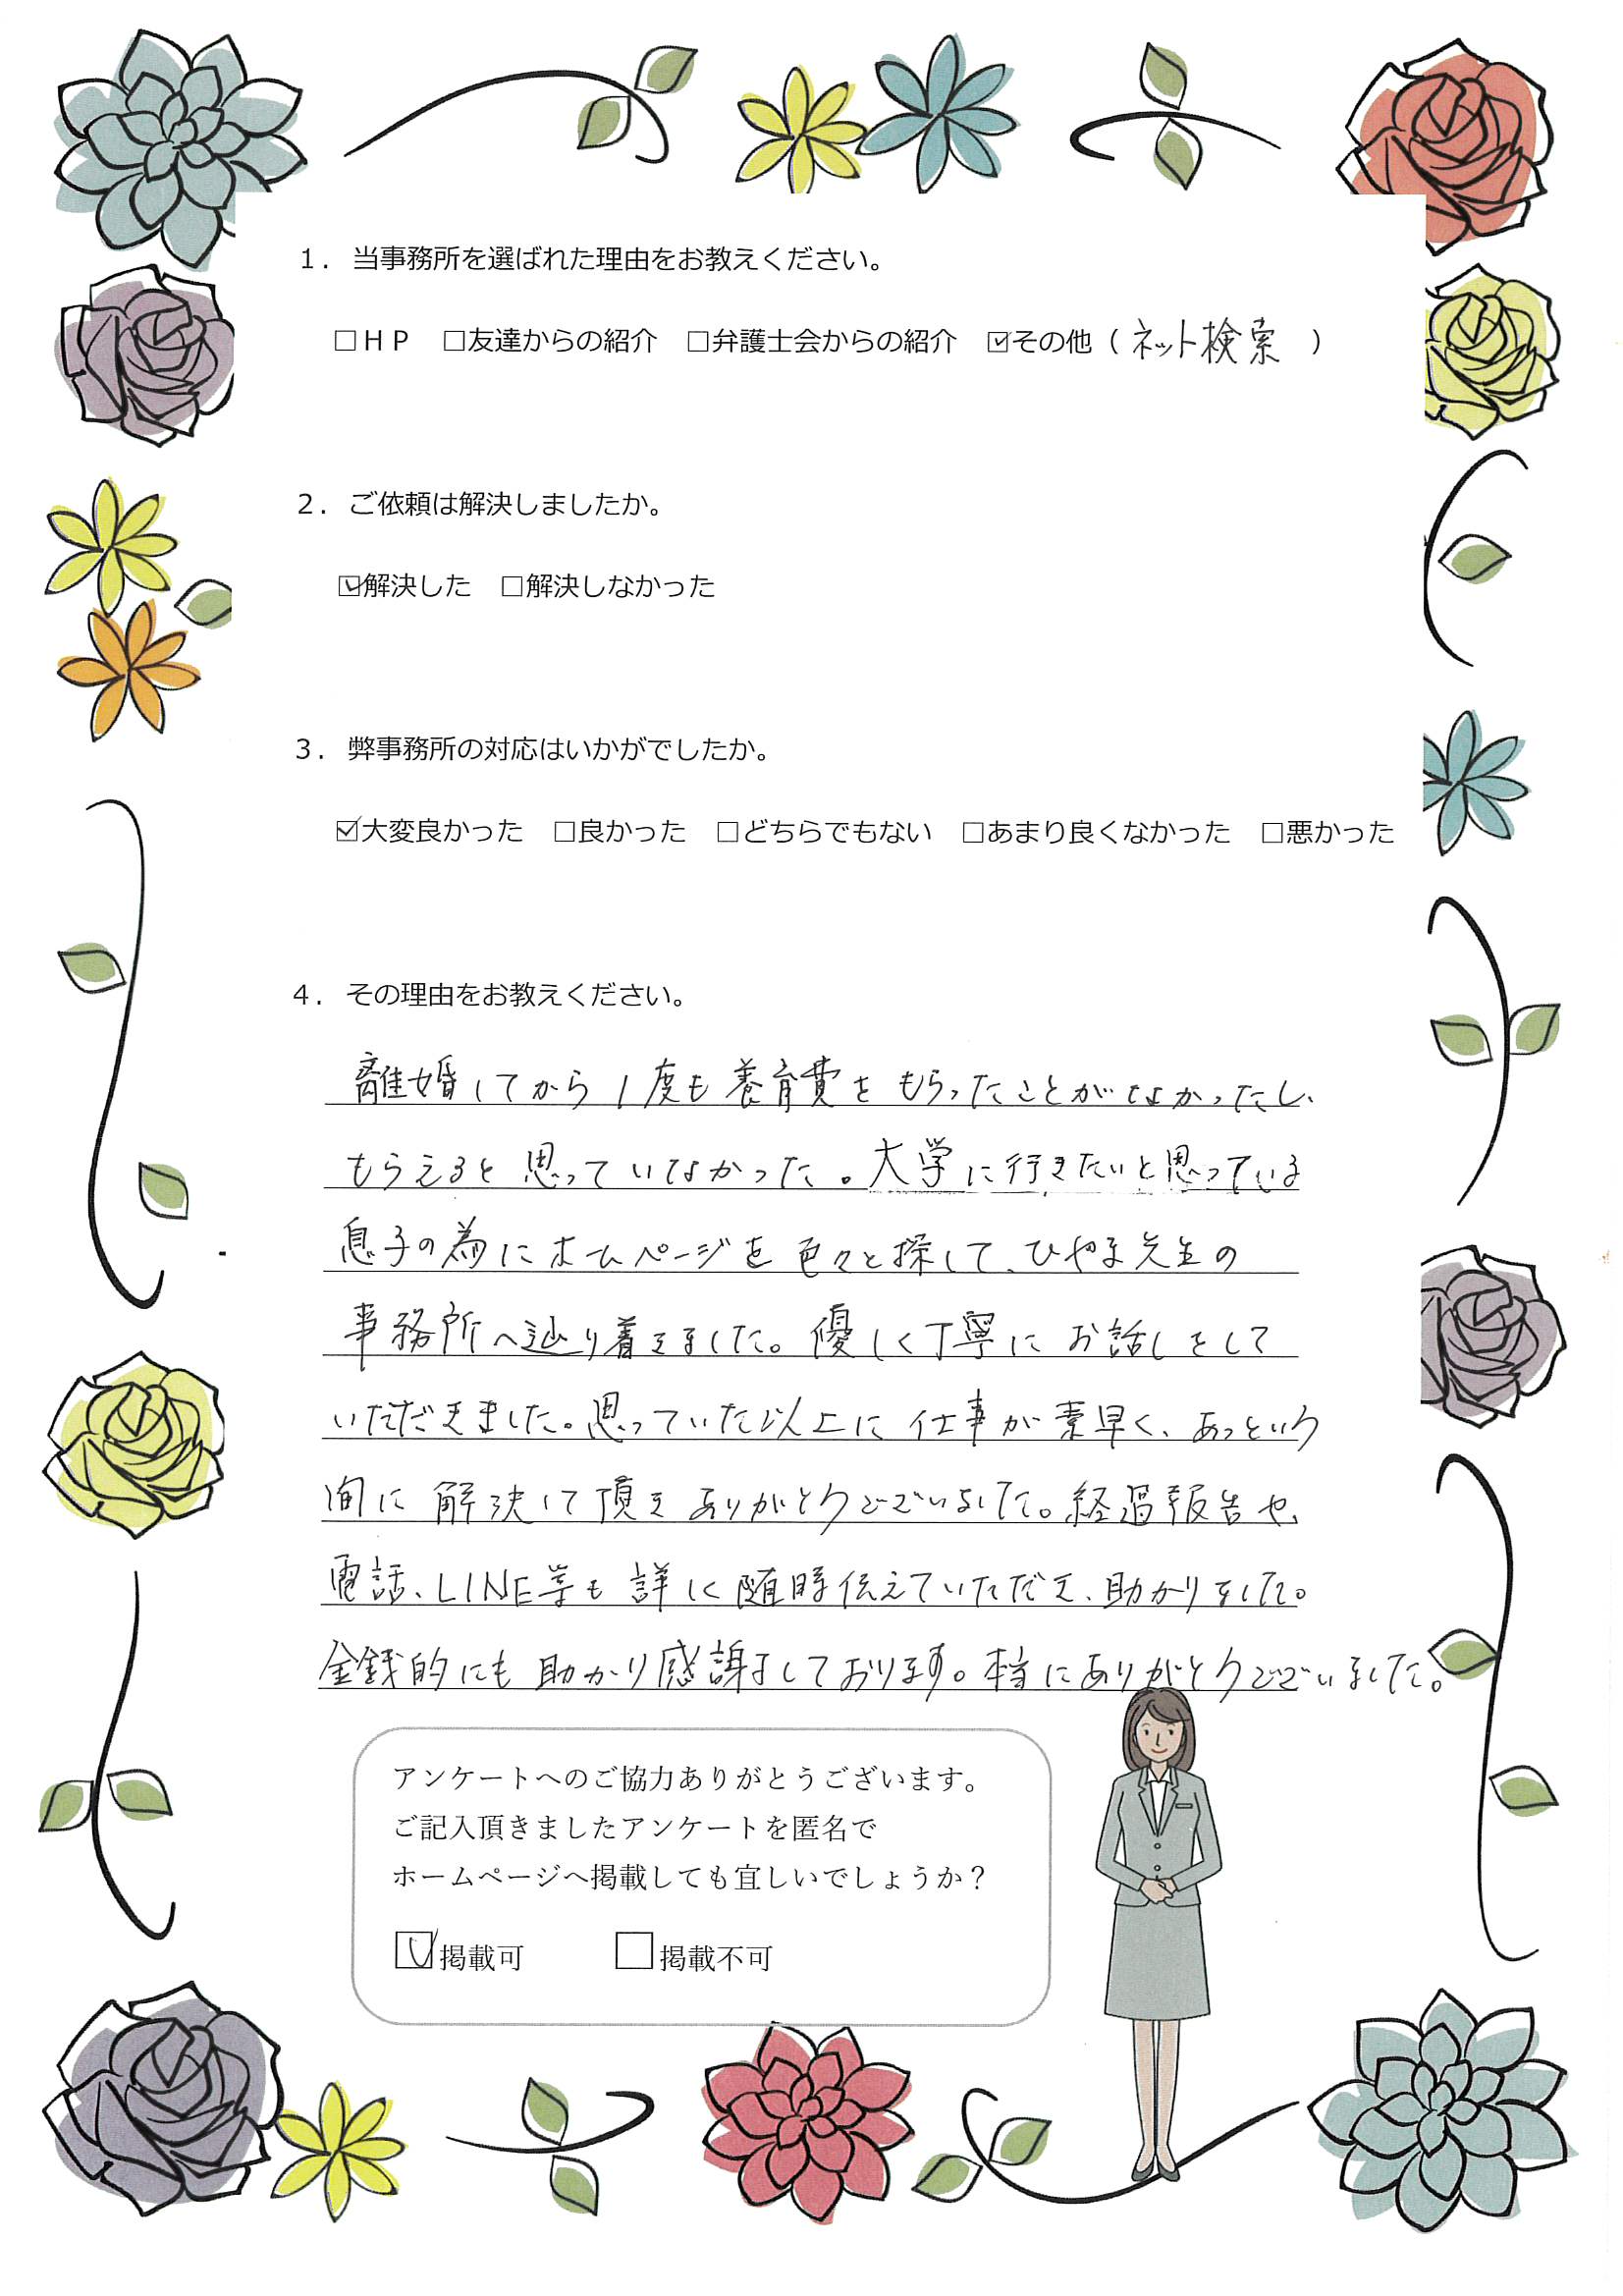 １．当事務所を選ばれた理由をお教えください。
□ＨＰ　□友達からの紹介　□弁護士会からの紹介　☑その他（ネット検索　）
２．ご依頼は解決しましたか。
☑解決した　□解決しなかった
３．弊事務所の対応はいかがでしたか。
☑大変良かった　□良かった　□どちらでもない　□あまり良くなかった　□悪かった
４．その理由をお教えください。
離婚してから１度も養育費をもらったことがなかったし、
もらえると思っていなかった。大学に行きたいと思っている
息子の為にホームページを色々と探して、ひやま先生の
事務所へ辿り着きました。優しく丁寧にお話しをして
いただきました。思っていた以上に仕事が素早く、あっという
間に解決して頂きありがとうございました。経過報告や、
電話、LINE等も詳しく随時伝えていただき、助かりました。
金銭的にも助かり感謝しております。本当にありがとうございました。
アンケートへのご協力ありがとうございます。
ご記入頂きましたアンケートを匿名で
ホームページへ掲載しても宜しいでしょうか？
☑掲載可　□掲載不可